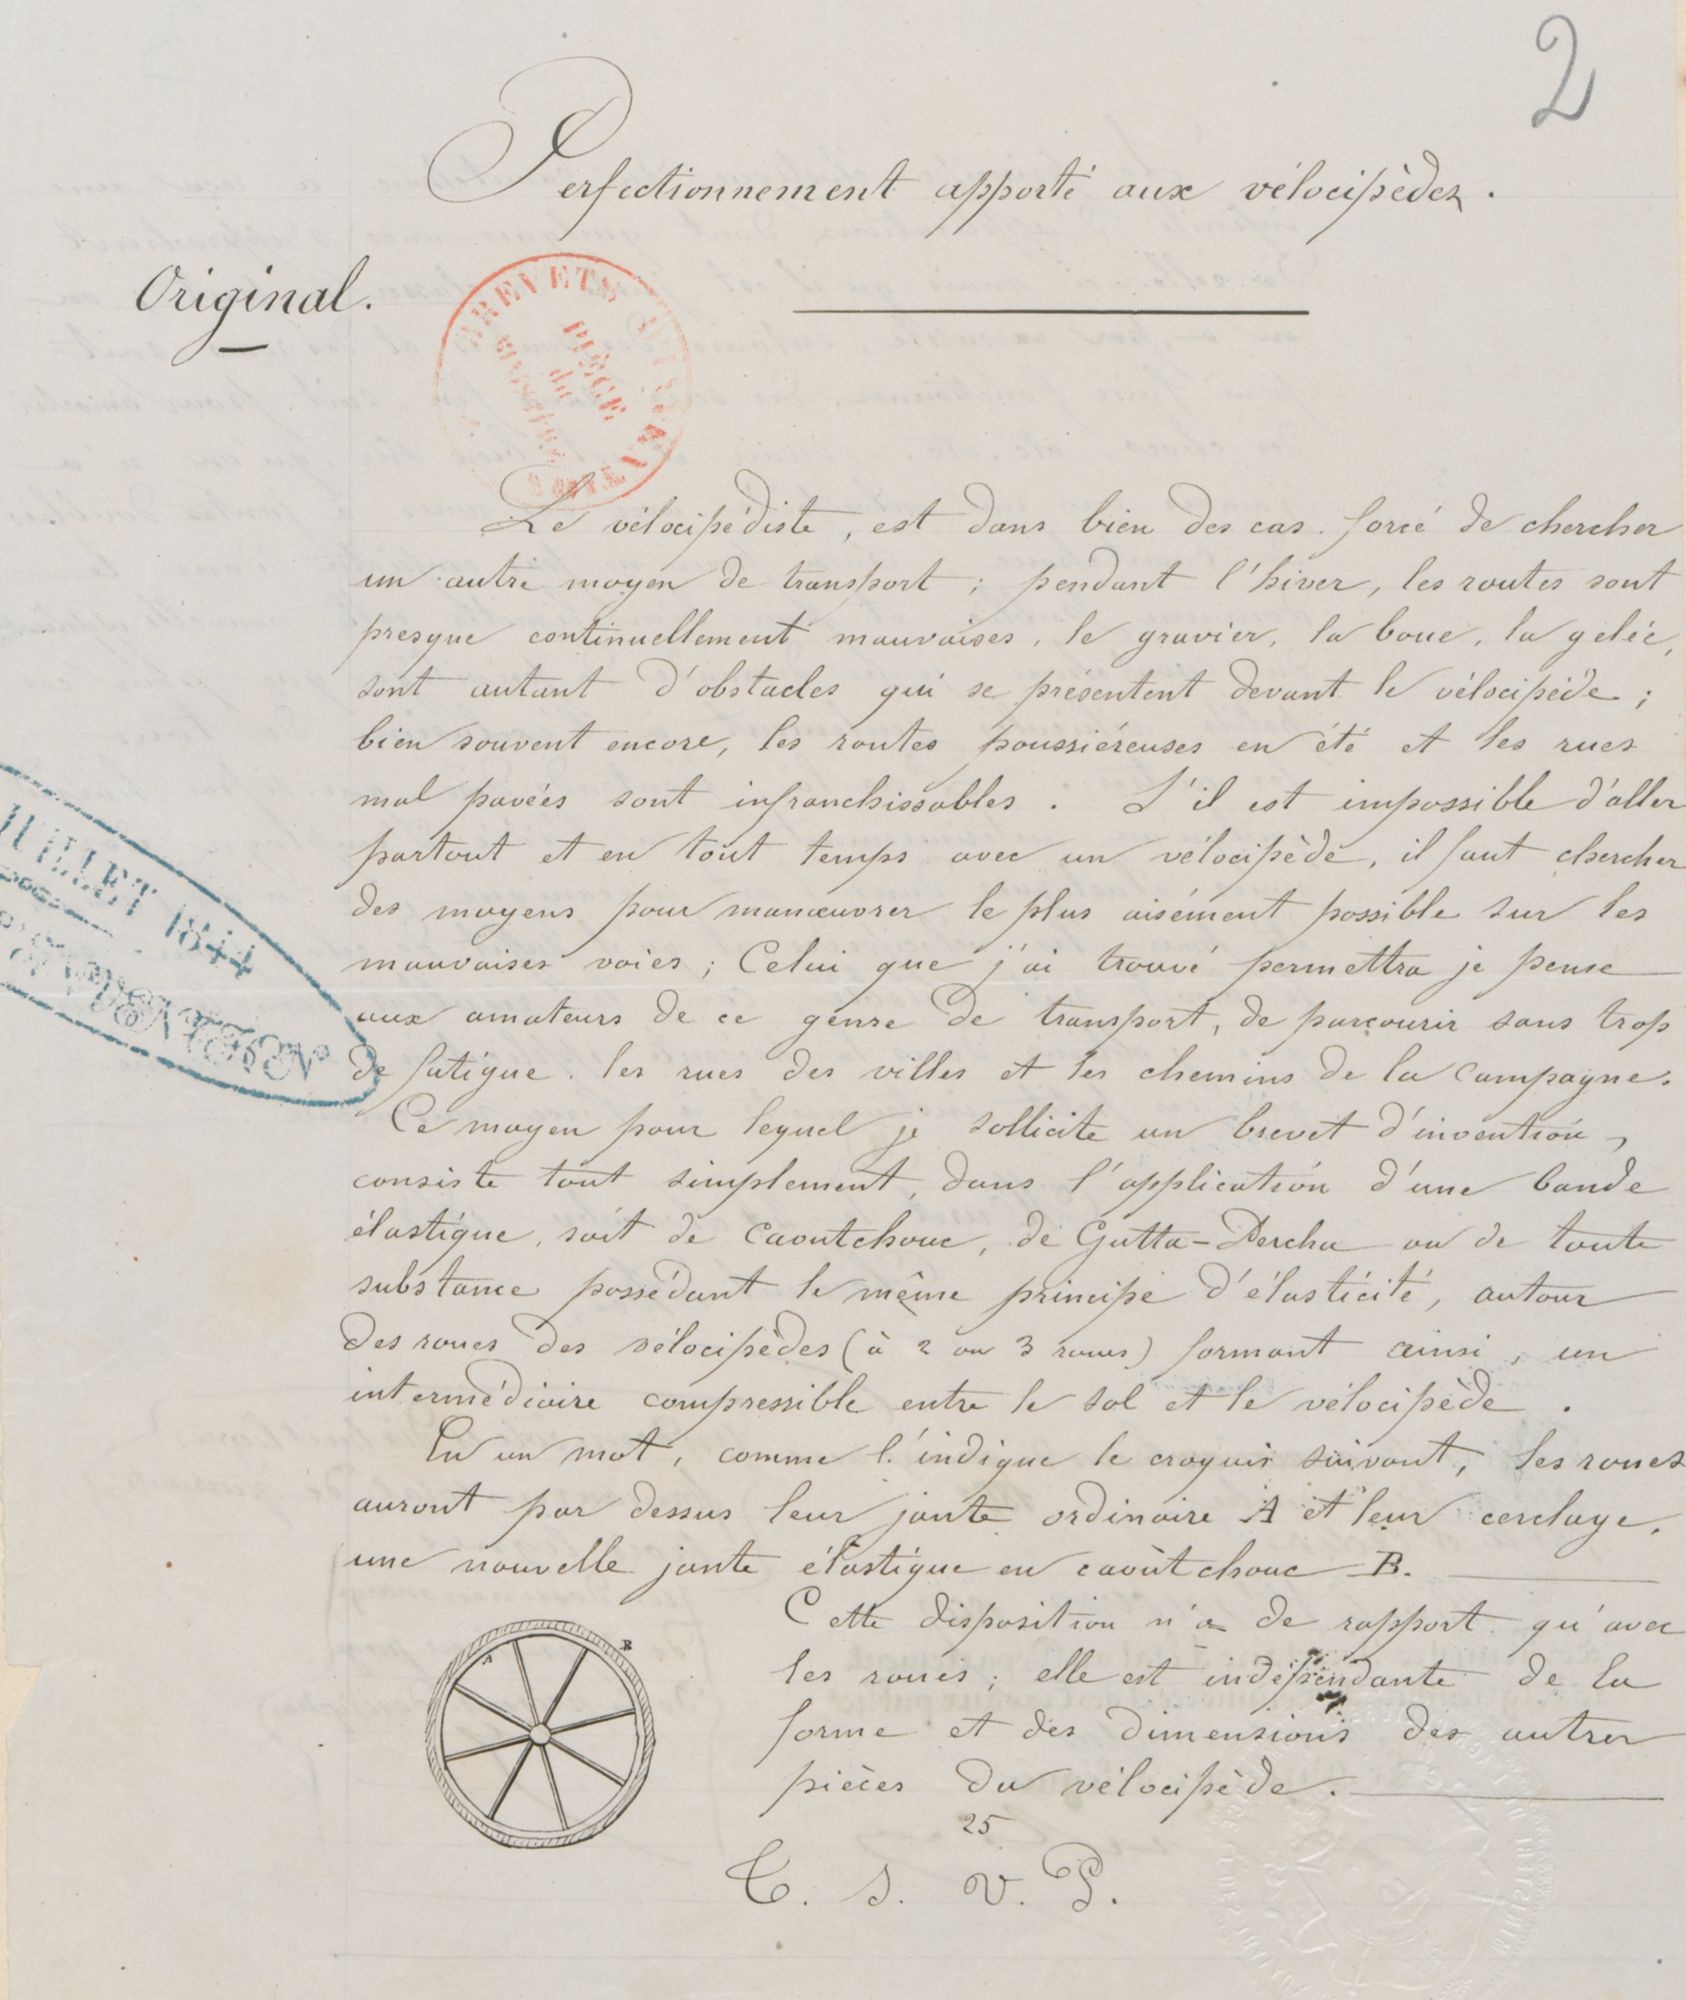 2
Perfectionnement apporté aux vélocipèdes.
Original.
BREVETS D'INVENTION
PIÈCE
du
Le vélocipédiste, est dans bien des cas forcé de chercher
un autre moyen de transport ; pendant l'hiver, les routes sont
presque continuellement mauvaises, le gravier, la boue, la gelée,
sont autant d'obstacles qui se présentent devant le vélocipède ;
bien souvent encore, les routes poussiéreuses en été et les rues
mal pavées sont infranchissables. S'il est impossible d'aller
partout et en tout temps avec un vélocipède, il faut chercher
des moyens pour manœuvrer le plus aisément possible sur les
mauvaises voies ; Celui que j'ai trouvé permettra je pense
aux amateurs de ce genre de transport, de parcourir sans trop
de fatigue, les rues des villes et les chemins de la Campagne.
Ce moyen pour lequel je sollicite un brevet d'invention,
consiste tout simplement, dans l'application d'une bande
élastique, soit de Caoutchouc, de Gutta-Percha ou de toute
substance possédant le même principe d'élasticité, autour
des roues des vélocipèdes (à 2 ou 3 roues) formant ainsi, un
intermédiaire compressible entre le sol et le vélocipède.
En un mot, comme l'indique le croquis suivant, les roues
auront par dessus leur jante ordinaire A et leur cerclage,
une nouvelle jante élastique en caoutchouc B.
Cette disposition n'a de rapport qu'avec
les roues ; elle est indépendante de la
forme et des dimensions des autres
pièces du vélocipède.
A
B
25
T. S. V. P.
JUILLET 1844
D'INVENTION